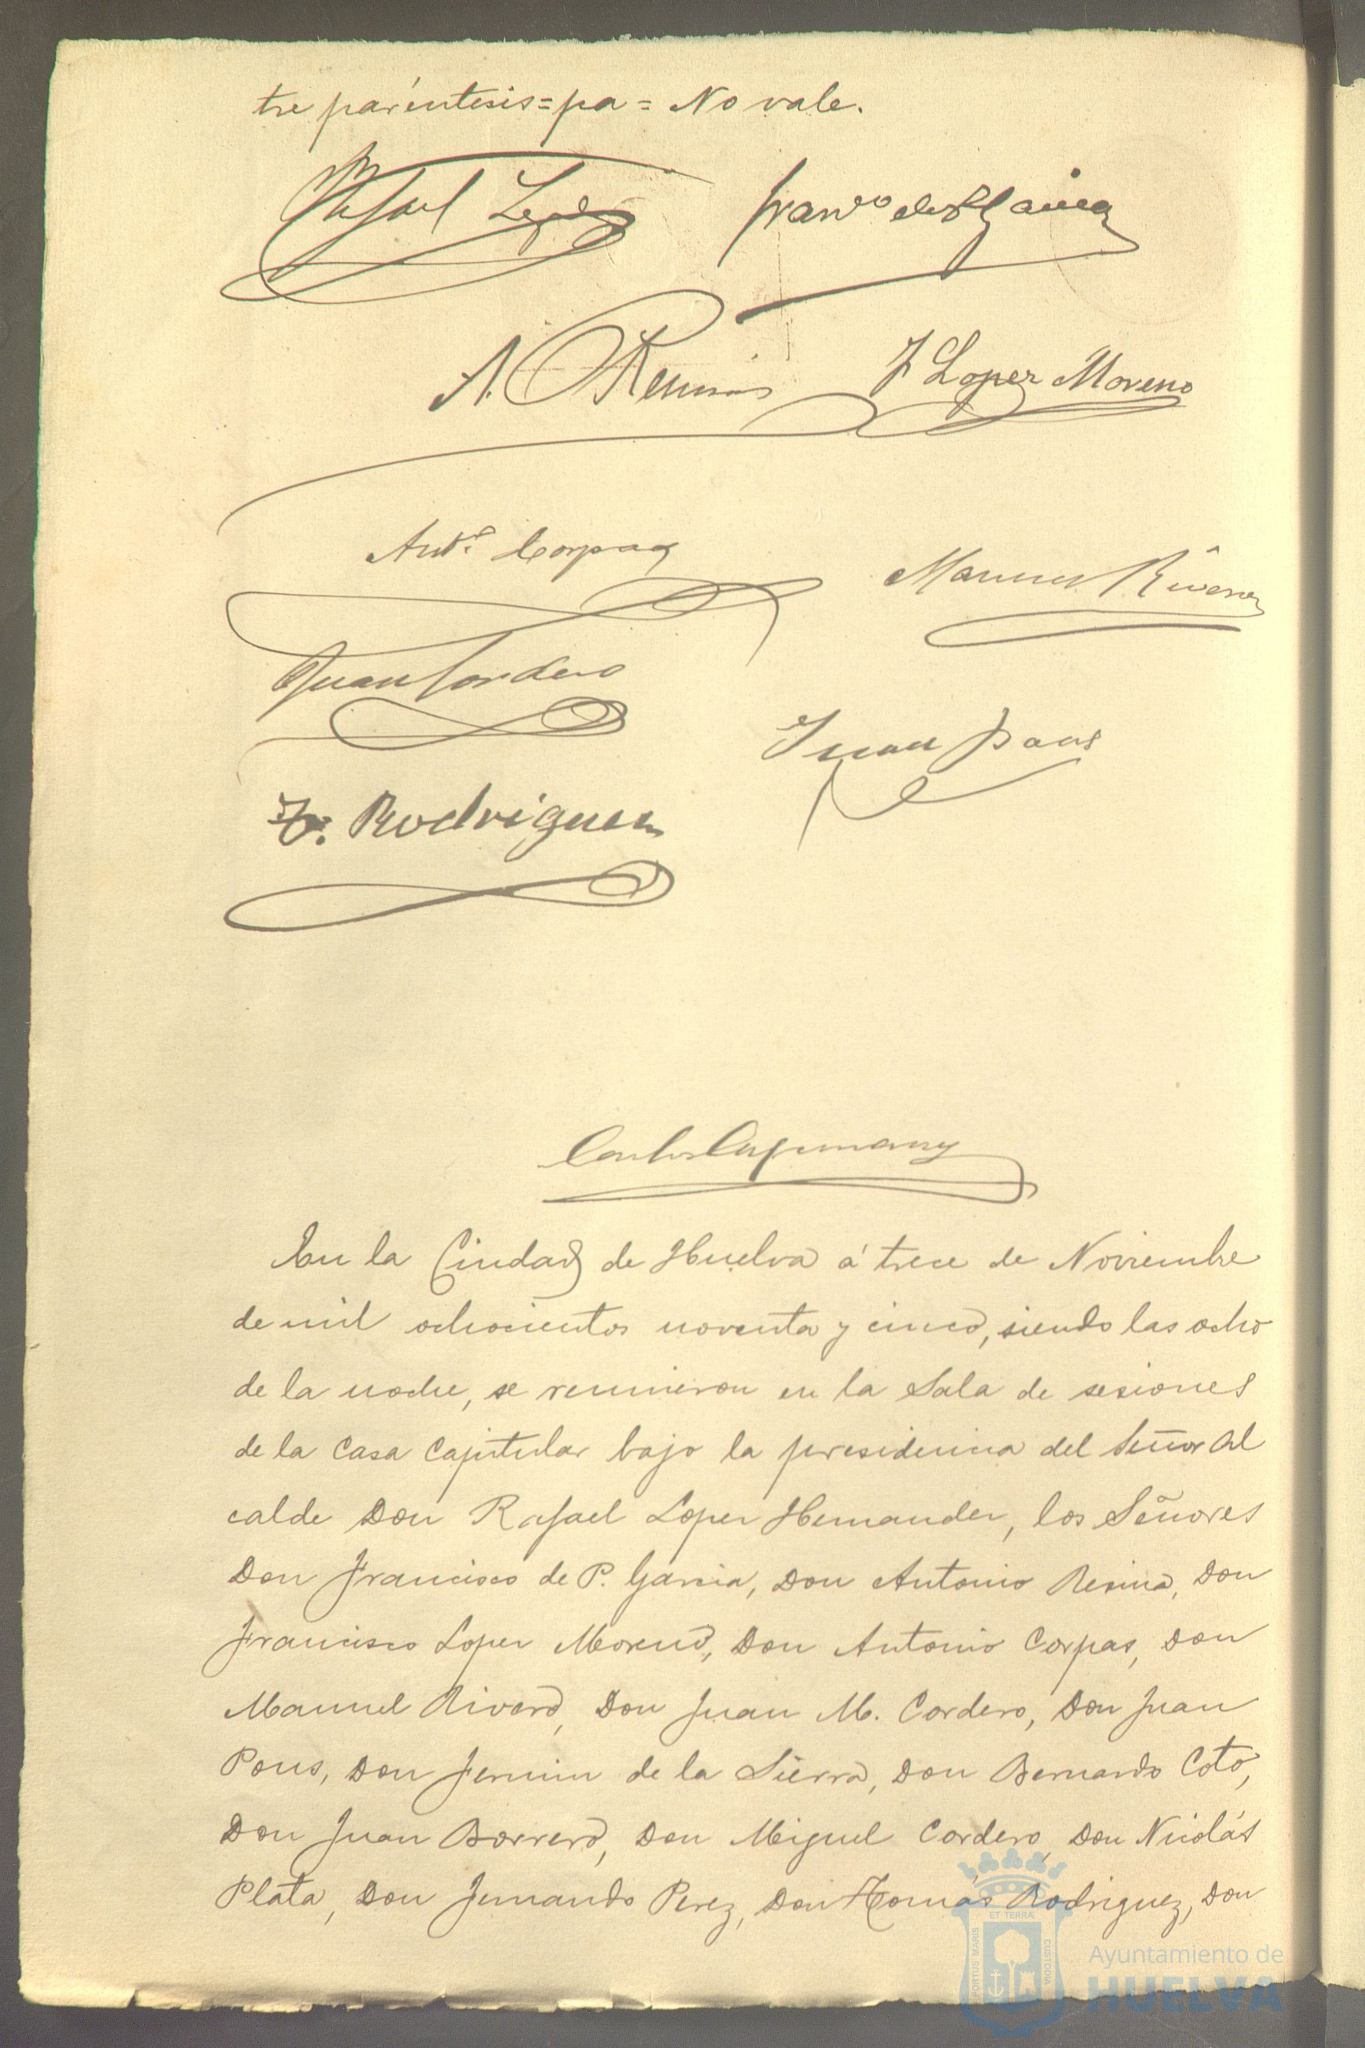 tre paréntesis = pa = No vale.
Rafael López
Franco de P. García
A. Resina
F. Lopez Moreno
Anto. Corpas
Manuel Rivero
Juan Cordero
Juan Pons
T. Rodriguez
En la Ciudad de Huelva á trece de Noviembre
de mil ochocientos noventa y cinco, siendo las ocho
de la noche, se reunieron en la Sala de sesiones
de la Casa Capitular bajo la presidencia del Señor Al
calde Don Rafael Lopez Hernandez, los Señores
Don Francisco de P. Garcia, Don Antonio Resina, Don
Francisco Lopez Moreno, Don Antonio Corpas, Don
Manuel Rivero, Don Juan M. Cordero, Don Juan
Pons, Don Fermin de la Sierra, Don Bernardo Coto,
Don Juan Borrero, Don Miguel Cordero, Don Nicolás
Plata, Don Fernando Perez, Don Tomás Rodriguez, Don
PORTUS MARIS
ET TERRÆ
CUSTODIA
Ayuntamiento de
HUELVA